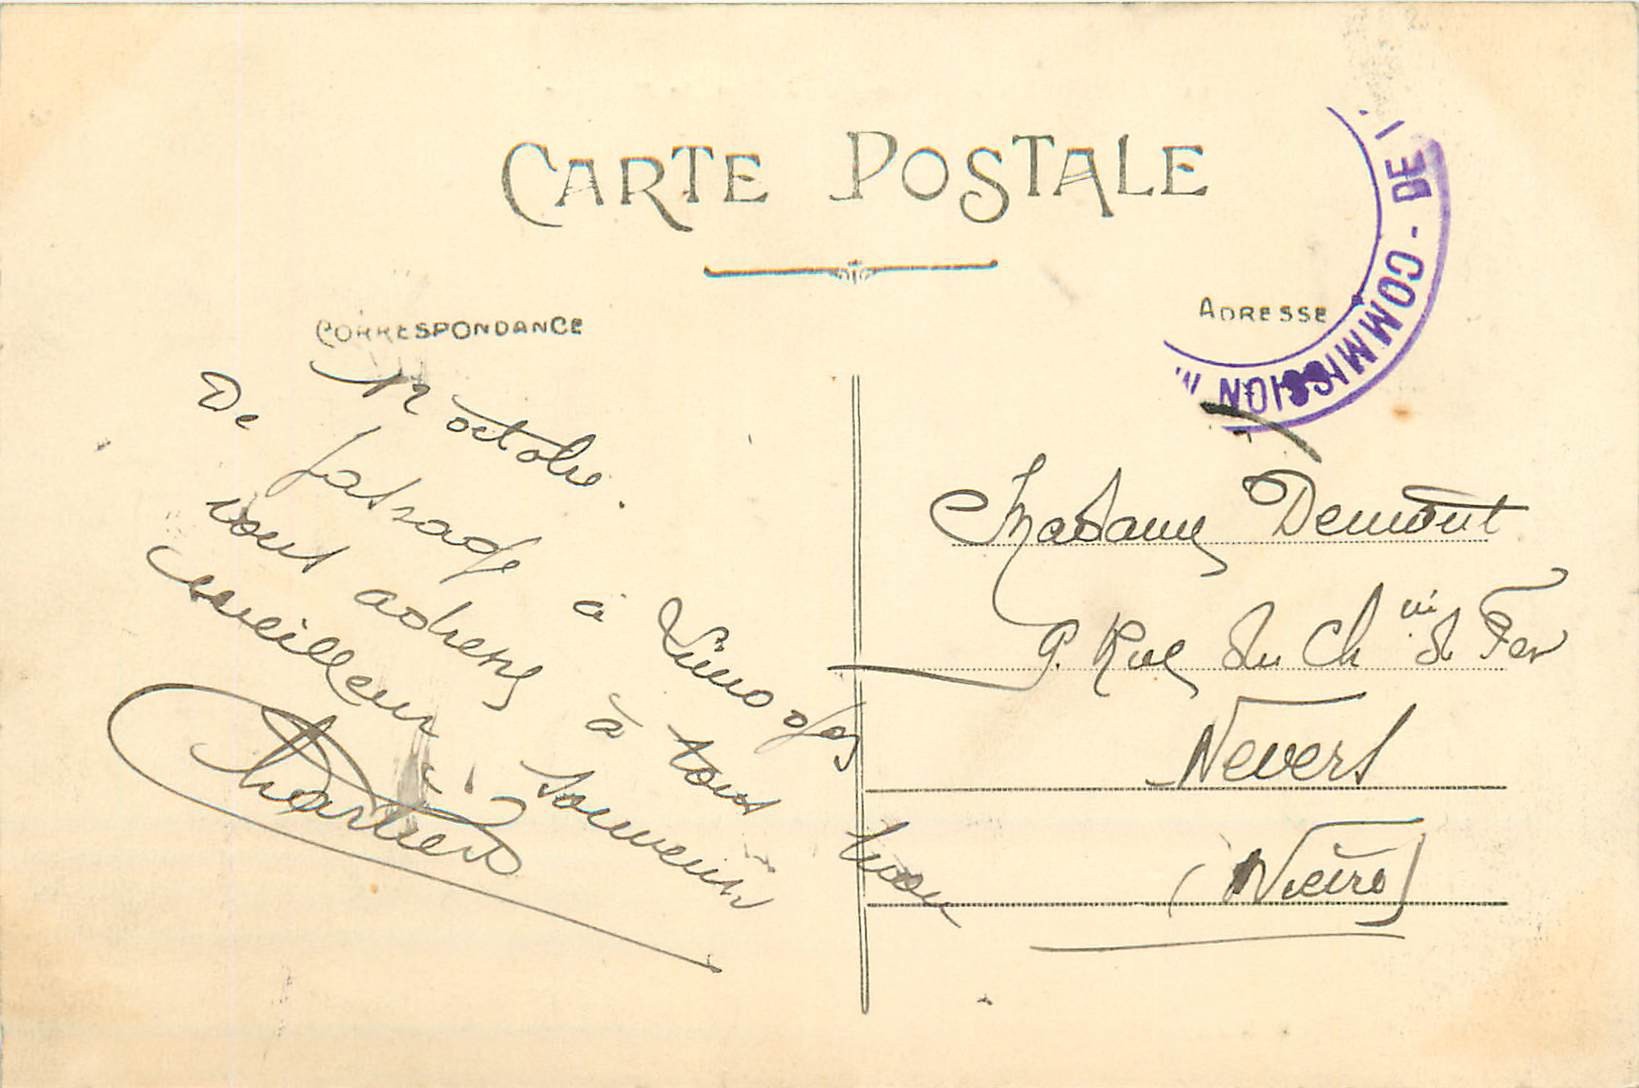 CARTE POSTALE
CORRESPONDANCE
ADRESSE
DE
- COMMISSION
12 octobre.
De passage à Limoges
vous adresse à tous mon
meilleur souvenir
Chartier
Madame Demont
9. Rue du Ch in de Fer
Nevers
(Nièvre)